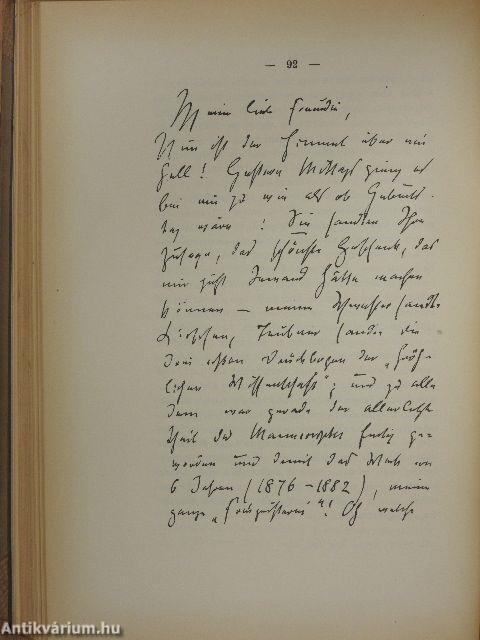 — 92 —
Meine liebe Freundin,
Nun ist der Himmel über mir
hell! Gestern Mittag gieng es
bei mir zu wie als ob Geburts-
tag wäre: Sie sandten Ihre
Zusage, das schönste Geschenk, das
mir jetzt Jemand hätte machen
können — meine Schwester sandte
Kirschen, Teubner sandte die
drei ersten Druckbogen der „fröh-
lichen Wissenschaft"; und zu alle
dem war gerade der allerletzte
Theil des Manuscriptes fertig ge-
worden und damit das Werk von
6 Jahren (1876–1882), meine
ganze „Freigeisterei"! Oh welche
Antikvárium.hu